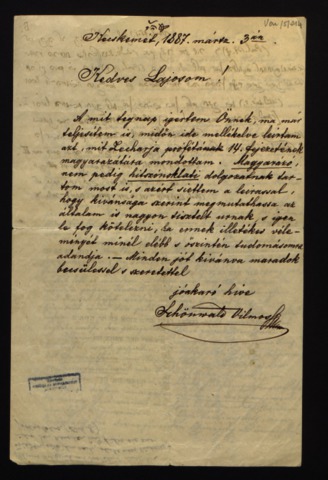 Kecskemét, 1887. márcz. 3án
Kedves Lajosom!
A mit tegnap igértem Önnek, ma már
teljesitem is, midőn ide mellékelve leirtam
azt, mit Zecharja profétának 14. fejezetének
magyarázatára mondottam. Magyarázó,
nem pedig hitszónoklati dolgozatnak tar-
tom most is, s azért siettem a leirással,
hogy kivánsága szerint megmutathassa az
általam is nagyon tisztelt urnak, s igen
le fog kötelezni, ha ennek illetékes véle-
ményét minél előbb s őszintén tudomásomra
adandja. — Minden jót kivánva maradok
becsüléssel s szeretettel
jóakaró hive
Schönwald Vilmos